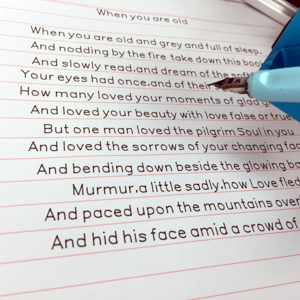 When you are old
When you are old and grey and full of sleep,
And nodding by the fire take down this book
And slowly read,and dream of the soft
Your eyes had once,and of their
How many loved your moments of glad g
And loved your beauty with love false or true
But one man loved the pilgrim Soul in you
And loved the sorrows of your changing fac
And bending down beside the glowing ba
Murmur,a little sadly,how Love fled
And paced upon the mountains over
And hid his face amid a crowd of